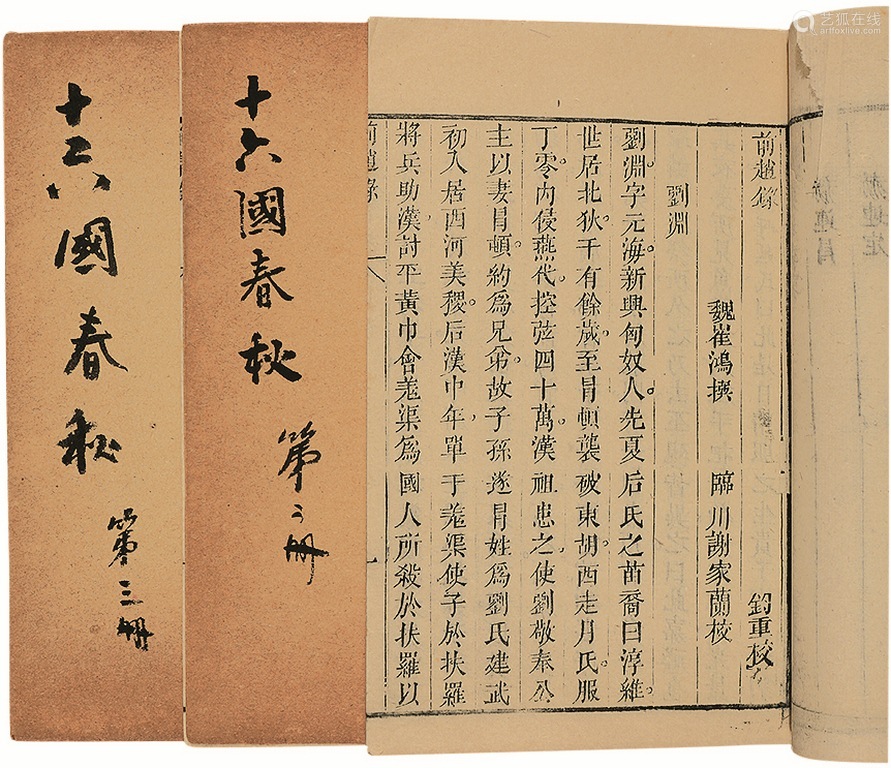 艺狐在线
artfoxlive.com
前趙錄
重校
魏崔鴻撰 臨川謝家蘭校
劉淵
劉淵字元海新興匈奴人先夏后氏之苗裔曰淳維
世居北狄千有餘歲至冐頓襲破東胡西走月氏服
丁零内侵燕代控弦四十萬漢祖患之使劉敬奉公
主以妻冐頓約爲兄弟故子孫遂冐姓爲劉氏建武
初入居西河美稷后漢中年單于羗渠使子於扶羅
將兵助漢討平黃巾會羗渠爲國人所殺於扶羅以
前趙錄
十六國春秋
第二册
十六國春秋
第三册